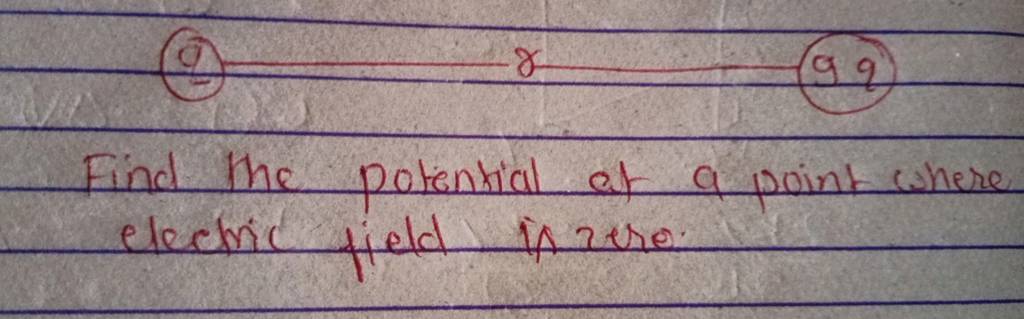 q r 9q
Find the potential at a point where
electric field is zero.